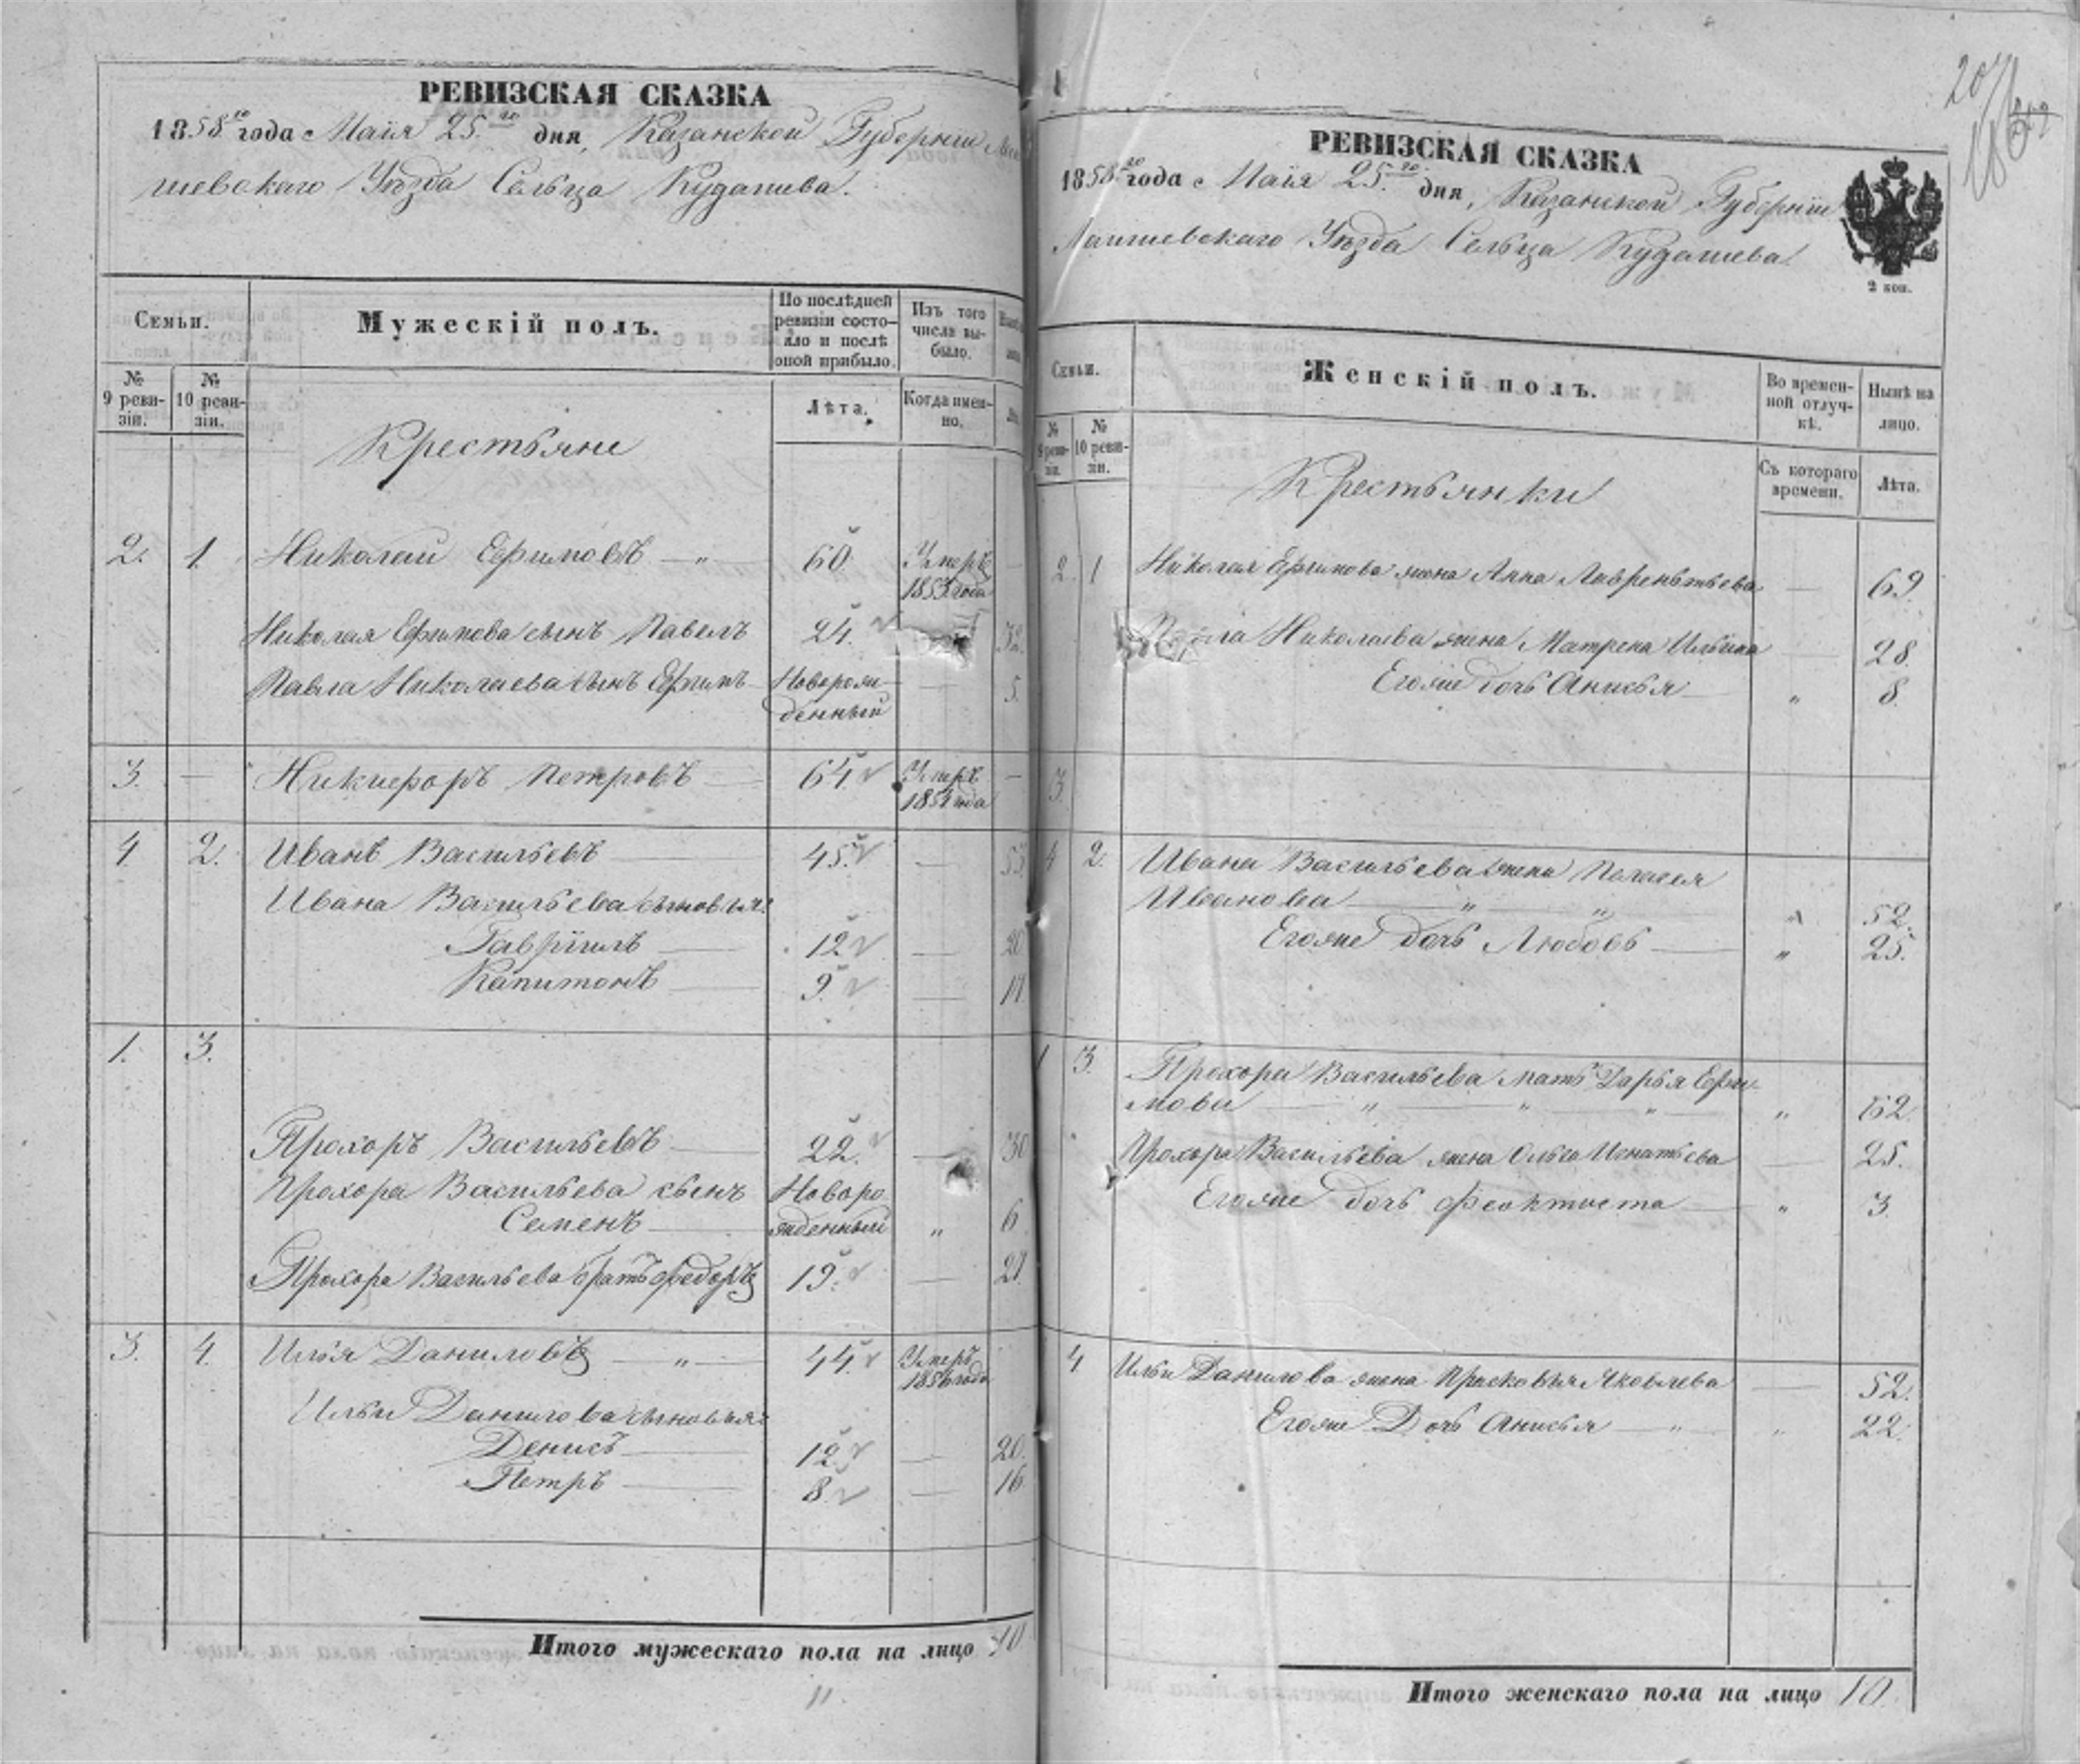 РЕВИЗСКАЯ СКАЗКА
1858го года Маія 25го дня, Казанской Губерніи Лаи
шевскаго Уѣзда Сельца Кудашева.
Семьи.
Мужескій полъ.
По послѣдней ревизіи состо-
яло и послѣ
оной прибыло.
Изъ того
числа вы-
было.
№
9 реви-
зіи.
№
10 реви-
зіи.
Лѣта.
Когда имен-
но.
Крестьяне
2. 1. Николай Ефимовъ — „ — 60. Умеръ
1853 года —
Николая Ефимова сынъ Павелъ 24. 32.
Павла Николаева сынъ Ефимъ Новорож-
денный — 5.
3. — Никифоръ Петровъ — 64. Умеръ
1854 года —
4 2. Иванъ Васильевъ — 45. — 53
Ивана Васильева сыновья:
Гавріилъ — 12 — 20
Капитонъ — 9. — 17
1. 3.
Прохоръ Васильевъ — 22. — 30
Прохора Васильева сынъ Новоро
Семенъ — жденный „ 6
Прохора Васильева братъ Федоръ 19. — 27.
3. 4. Илья Даниловъ — „ — 44. Умеръ
1856 года
Ильи Данилова сыновья:
Денисъ — 12. — 20.
Петръ — 8. — 16
Итого мужескаго пола на лицо 10
11.
РЕВИЗСКАЯ СКАЗКА
1858го года Маія 25го дня, Казанской Губерніи
Лаишевскаго Уѣзда Сельца Кудашева.
2 коп.
Семьи.
Женскій полъ.
Во времен-
ной отлуч-
кѣ.
Нынѣ на
лицо.
№
9 реви-
зіи.
№
10 реви-
зіи.
Съ котораго
времени.
Лѣта.
Крестьянки
2. 1 Николая Ефимова жена Анна Лаврентьева — 69.
Павла Николаева жена Матрена Ильина — 28.
Егоже дочь Анисья — „ 8.
3.
4 2. Ивана Васильева жена Пелагея
Иванова — „ — „ 52.
Егоже дочь Любовь — „ 25.
1 3. Прохора Васильева мать Дарья Ефи-
мова — „ — „ — „ „ 62.
Прохора Васильева жена Ольга Игнатьева — 25.
Егоже дочь Феоктиста — „ 3.
4 Ильи Данилова жена Прасковья Яковлева — 52.
Егоже Дочь Анисья — „ „ 22.
Итого женскаго пола на лицо 10.